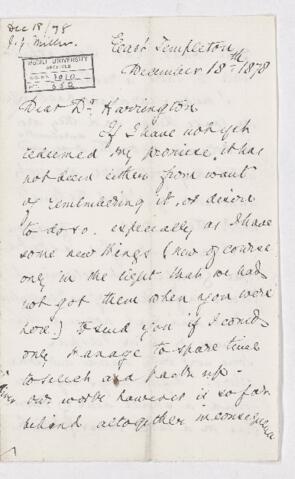 Dec 18/78
J.G. Miller.
McGILL UNIVERSITY
ARCHIVES
ACC. 1010
REF. 
East Templeton
December 18th 1878
Dear Dr Harrington
If I have not yet
redeemed my promise, it has
not been either from want
of remembering it, or desire
to do so. especially as I have
some new things (new of course
only in the light that we had
not got them when you were
here.) to send you if I could
only manage to spare time
to select and pack up -
our work however is so far
behind altogether in consequence